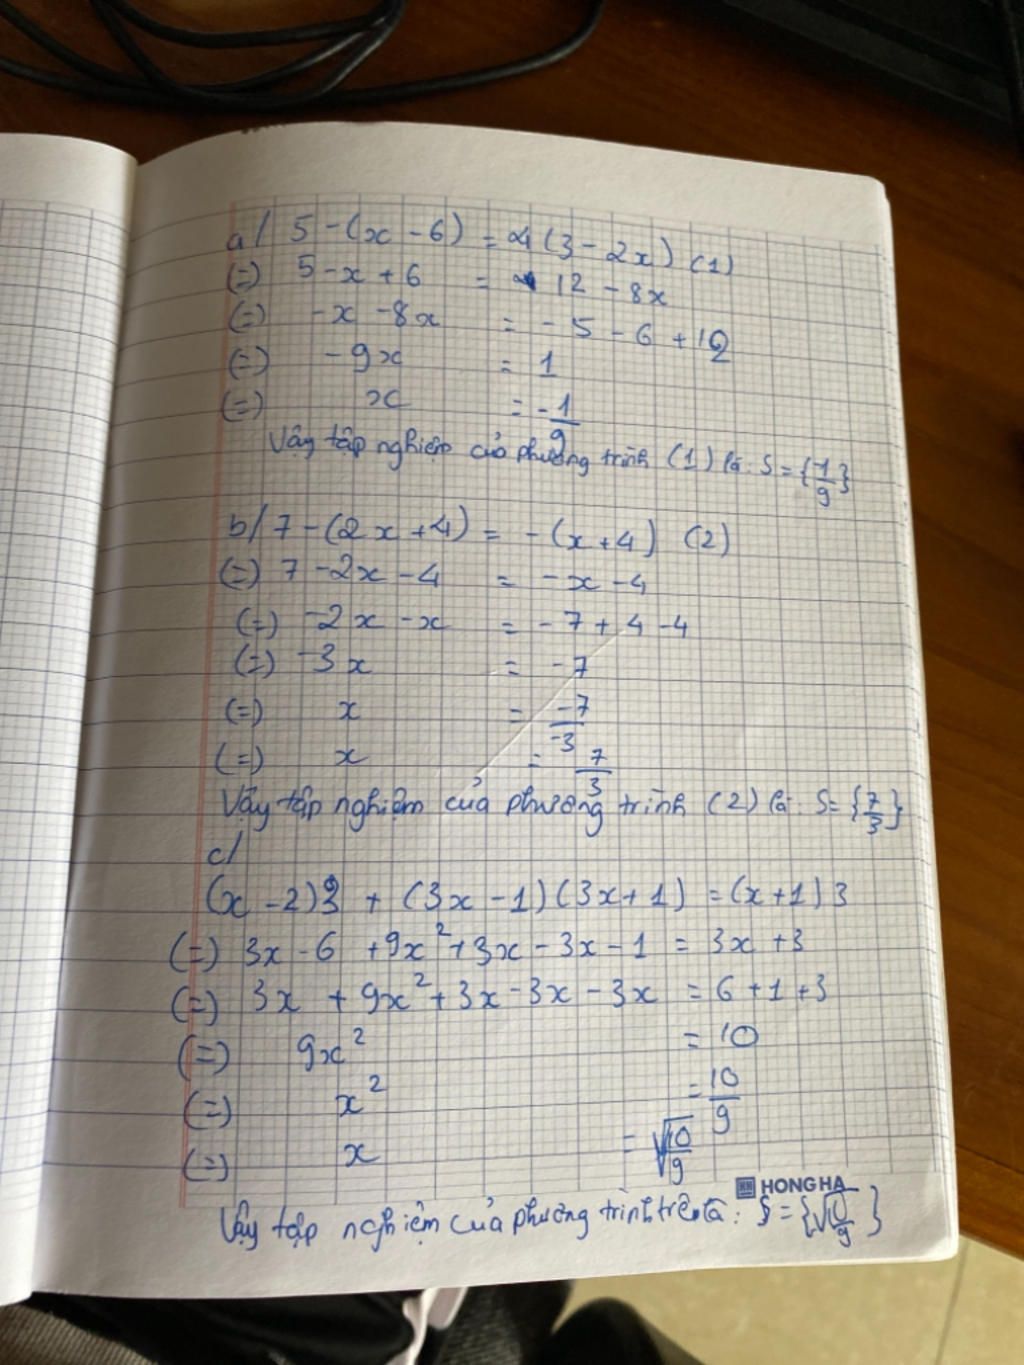 a/ 5 - (x - 6) = 4 (3 - 2x) (1)
(=) 5 - x + 6 = 12 - 8x
(=) -x - 8x = - 5 - 6 + 12
(=) - 9x = 1
(=) x = -1/9
Vậy tập nghiệm của phương trình (1) là: S = {1/9}
b/ 7 - (2x + 4) = - (x + 4) (2)
(=) 7 - 2x - 4 = - x - 4
(=) -2x - x = - 7 + 4 - 4
(=) -3x = - 7
(=) x = -7/-3
(=) x = 7/3
Vậy tập nghiệm của phương trình (2) là: S = {7/3}
c/
(x - 2)3 + (3x - 1)(3x + 1) = (x + 1)3
(=) 3x - 6 + 9x² + 3x - 3x - 1 = 3x + 3
(=) 3x + 9x² + 3x - 3x - 3x = 6 + 1 + 3
(=) 9x² = 10
(=) x² = 10/9
(=) x = √10/9
HONG HA
Vậy tập nghiệm của phương trình trên là: S = {√10/9}